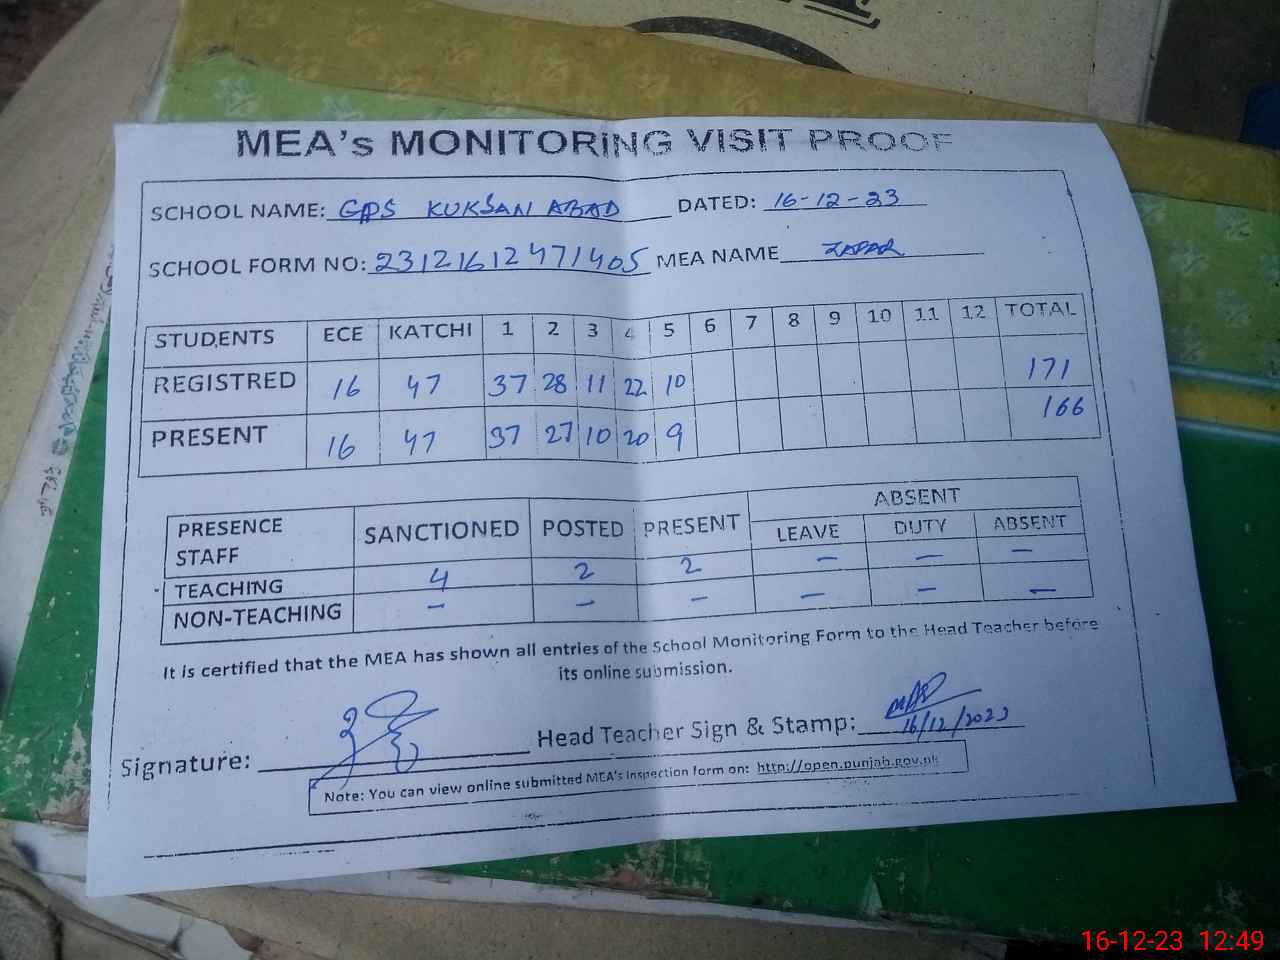 MEA's MONITORING VISIT PROOF
SCHOOL NAME: GPS KUKSAN ABAD DATED: 16-12-23
SCHOOL FORM NO: 23121612471405 MEA NAME ZAFAR
STUDENTS ECE KATCHI 1 2 3 4 5 6 7 8 9 10 11 12 TOTAL
REGISTRED 16 47 37 28 11 22 10 171
PRESENT 16 47 37 27 10 20 9 166
PRESENCE STAFF SANCTIONED POSTED PRESENT ABSENT
LEAVE DUTY ABSENT
TEACHING 4 2 2 – – –
NON-TEACHING – – – – – –
It is certified that the MEA has shown all entries of the School Monitoring Form to the Head Teacher before
its online submission.
Signature: Head Teacher Sign & Stamp: 16/12/2023
Note: You can view online submitted MEA's Inspection form on: http://open.punjab.gov.pk
16-12-23 12:49